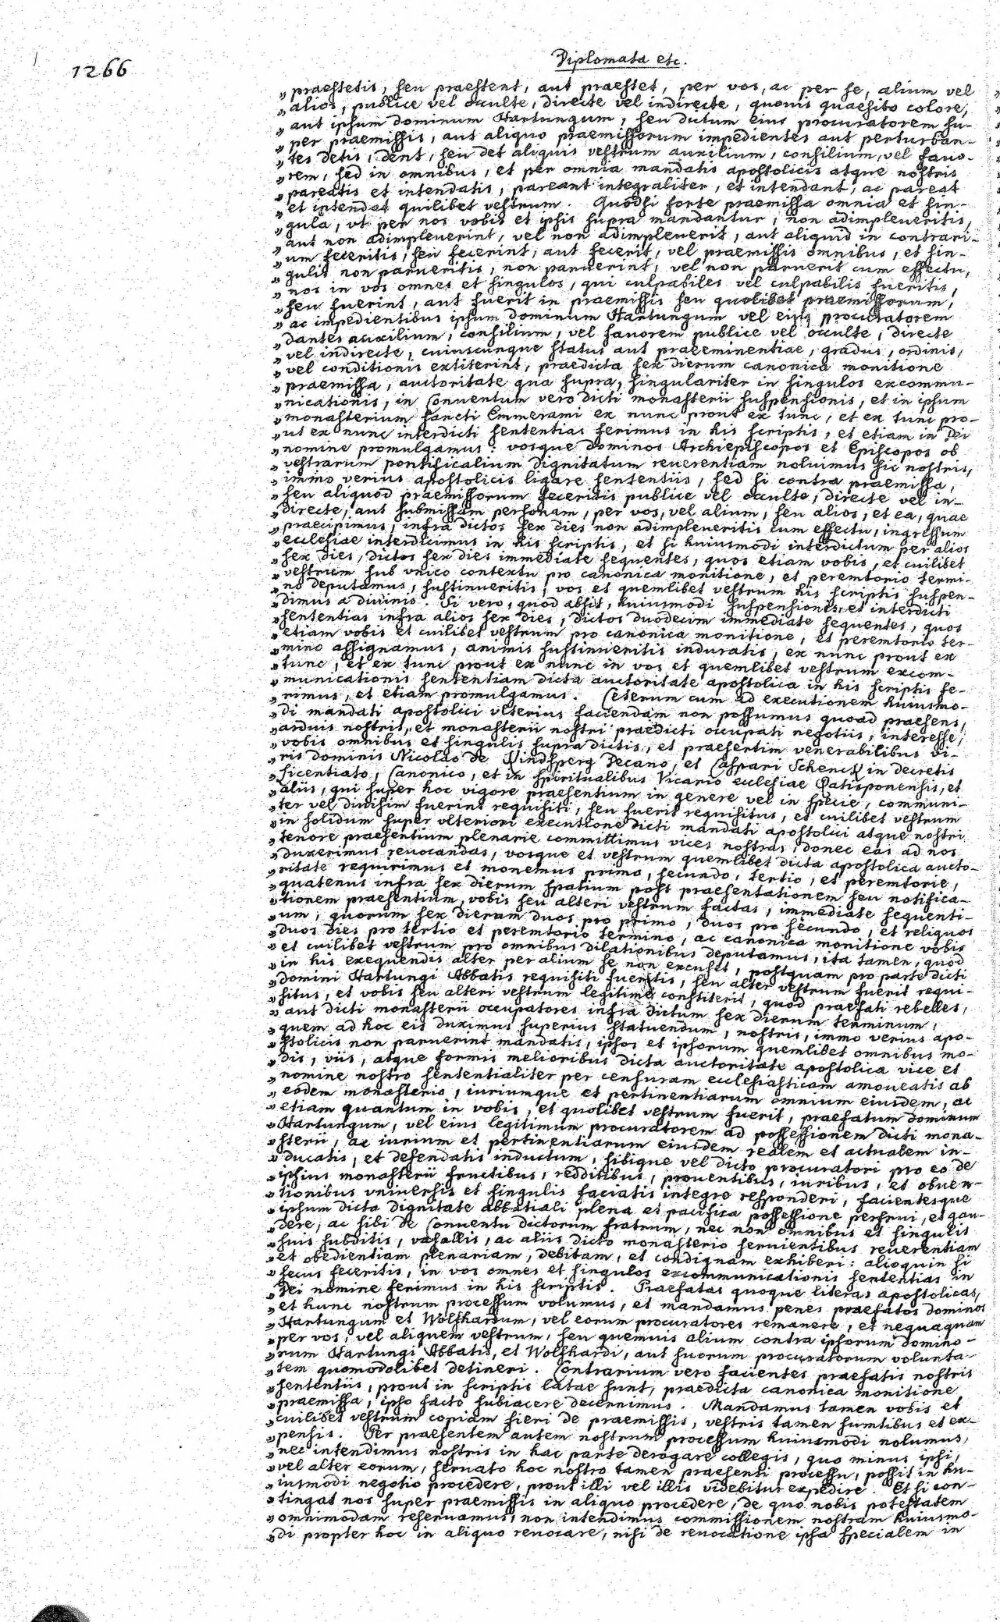 1266
Diplomata etc.
„praestetis, seu praestent, aut praestet, per vos, ac per se, alium vel
„alios, publice vel occulte, directe vel indirecte, quouis quaesito colore,
„aut ipsum dominum Hartungum, seu dictum eius procuratorem su-
„per praemissis, aut aliquo praemissorum impedientes aut perturban-
„tes detis, dent, seu det aliquis vestrum auxilium, consilium, vel fauo-
„rem, sed in omnibus, et per omnia mandatis apostolicis atque nostris
„pareatis et intendatis, pareant integraliter, et intendant, ac pareat
„et intendat quilibet vestrum. Quodsi forte praemissa omnia et sin-
„gula, vt per nos vobis et ipsis supra mandantur, non adimpleueritis,
„aut non adimpleuerint, vel non adimpleuerit, aut aliquid in contrari-
„um feceritis, seu fecerint, aut fecerit, vel praemissis omnibus, et sin-
„gulis non parueritis, non paruerint, vel non paruerit cum effectu,
„nos in vos omnes et singulos, qui culpabiles vel culpabilis fueritis,
„seu fuerint, aut fuerit in praemissis seu quolibet praemissorum,
„ac impedientibus ipsum dominum Hartungum vel eius procuratorem
„dantes auxilium, consilium, vel fauorem publice vel occulte, directe
„vel indirecte, cuiuscunque status aut praeeminentiae, gradus, ordinis,
„vel conditionis extiterint, praedicta sex dierum canonica monitione
„praemissa, auctoritate qua supra, singulariter in singulos excommu-
„nicationis, in Conuentum vero dicti monasterii suspensionis, et in ipsum
„monasterium sancti Emmerami ex nunc prout ex tunc, et ex tunc pro-
„ut ex nunc interdicti sententias ferimus in his scriptis, et etiam in Dei
„nomine promulgamus: vosque dominos Archiepiscopos et Episcopos ob
„vestrarum pontificalium dignitatum reuerentiam noluimus sic nostris,
„immo verius apostolicis ligare sententiis, sed si contra praemissa,
„seu aliquod praemissorum feceritis publice vel occulte, directe vel in-
„directe, aut submissam personam, per vos, vel alium, seu alios, et ea, quae
„praecipimus, infra dictos sex dies non adimpleueritis cum effectu, ingressum
„ecclesiae interdicimus in his scriptis, et si huiusmodi interdictum per alios
„sex dies, dictos sex dies immediate sequentes, quos etiam vobis, et cuilibet
„vestrum sub vnico contextu pro canonica monitione, et peremtorio termi-
„no deputamus, sustinueritis, vos et quemlibet vestrum his scriptis suspen-
„dimus a diuinis. Si vero, quod absit, huiusmodi suspensiones et interdicti
„sententias infra alios sex dies, dictos duodecim immediate sequentes, quos
„etiam vobis et cuilibet vestrum pro canonica monitione, et peremtorio ter-
„mino assignamus, animis sustinueritis induratis, ex nunc prout ex
„tunc, et ex tunc prout ex nunc in vos et quemlibet vestrum excom-
„municationis sententiam dicta auctoritate apostolica in his scriptis fe-
„rimus, et etiam promulgamus. Ceterum cum ad executionem huiusmo-
„di mandati apostolici vlterius faciendam non possumus quoad praesens,
„arduis nostris, et monasterii nostri praedicti occupati negotiis, interesse,
„vobis omnibus et singulis supra dictis, et praesertim venerabilibus vi-
„ris dominis Nicolao de Kindsperg Decano, et Caspari Schenck in decretis
„licentiato, Canonico, et in spiritualibus Vicario ecclesiae Ratisponensis, et
„aliis, qui super hoc vigore praesentium in genere vel in specie, communi-
„ter vel diuisim fuerint requisiti, seu fuerit requisitus, et cuilibet vestrum
„in solidum super vlteriori executione dicti mandati apostolici atque nostri
„tenore praesentium plenarie committimus vices nostras, donec eas ad nos
„duxerimus reuocandas, vosque et vestrum quemlibet dicta apostolica aucto-
„ritate requirimus et monemus primo, secundo, tertio, et peremtorie,
„quatenus infra sex dierum spatium post praesentationem seu notifica-
„tionem praesentium, vobis seu alteri vestrum factas, immediate sequenti-
„um, quorum sex dierum duos pro primo, duos pro secundo, et reliquos
„duos dies pro tertio et peremtorio termino, ac canonica monitione vobis
„et cuilibet vestrum pro omnibus dilationibus deputamus, ita tamen, quod
„in his exequendis alter per alium se non excuset, postquam pro parte dicti
„domini Hartungi Abbatis requisiti fueritis, seu alter vestrum fuerit requi-
„situs, et vobis seu alteri vestrum legitime constiterit, quod praefati rebelles,
„aut dicti monasterii occupatores infra dictum sex dierum terminum,
„quem ad hoc eis duximus superius statuendum, nostris, immo verius apo-
„stolicis non paruerint mandatis, ipsos et ipsorum quemlibet omnibus mo-
„dis, viis, atque formis melioribus dicta auctoritate apostolica vice et
„nomine nostro sententialiter per censuram ecclesiasticam amoueatis ab
„eodem monasterio, iuriumque et pertinentiarum omnium eiusdem, ac
„etiam quantum in vobis, et quolibet vestrum fuerit, praefatum dominum
„Hartungum, vel eius legitimum procuratorem ad possessionem dicti mona-
„sterii, ac iurium et pertinentiarum eiusdem realem et actualem in-
„ducatis, et defendatis inductum, sibique vel dicto procuratori pro eo de
„ipsius monasterii fructibus, redditibus, prouentibus, iuribus, et obuen-
„tionibus vniuersis et singulis faciatis integre responderi, facientesque
„ipsum dicta dignitate abbatiali plena et pacifica possessione perfrui, et gau-
„dere, ac sibi de Conuentu dictorum fratrum, nec non omnibus et singulis
„suis subditis, vasallis, ac aliis dicto monasterio seruientibus reuerentiam
„et obedientiam plenariam, debitam, et condignam exhiberi: alioquin si
„secus feceritis, in vos omnes et singulos excommunicationis sententias in
„Dei nomine ferimus in his scriptis. Praefatas quoque literas apostolicas,
„et hunc nostrum processum volumus, et mandamus penes praefatos dominos
„Hartungum et Wolfhardum, vel eorum procuratores remanere, et nequaquam
„per vos, vel aliquem vestrum, seu quemuis alium contra ipsorum domino-
„rum Hartungi Abbatis, et Wolfhardi, aut suorum procuratorum volunta-
„tem quomodolibet detineri. Contrarium vero facientes praefatis nostris
„sententiis, prout in scriptis latae sunt, praedicta canonica monitione
„praemissa, ipso facto subiacere decernimus. Mandamus tamen vobis et
„cuilibet vestrum copiam fieri de praemissis, vestris tamen sumtibus et ex-
„pensis. Per praesentem autem nostrum processum huiusmodi nolumus,
„nec intendimus nostris in hac parte derogare collegis, quo minus ipsi,
„vel alter eorum, seruato hoc nostro tamen praesenti processu, possit in hu-
„iusmodi negotio procedere, prout illi vel illis videbitur expedire. Et si con-
„tingat nos super praemissis in aliquo procedere, de quo nobis potestatem
„omnimodam reseruamus, non intendimus commissionem nostram huiusmo-
„di propter hoc in aliquo reuocare, nisi de reuocatione ipsa specialem in